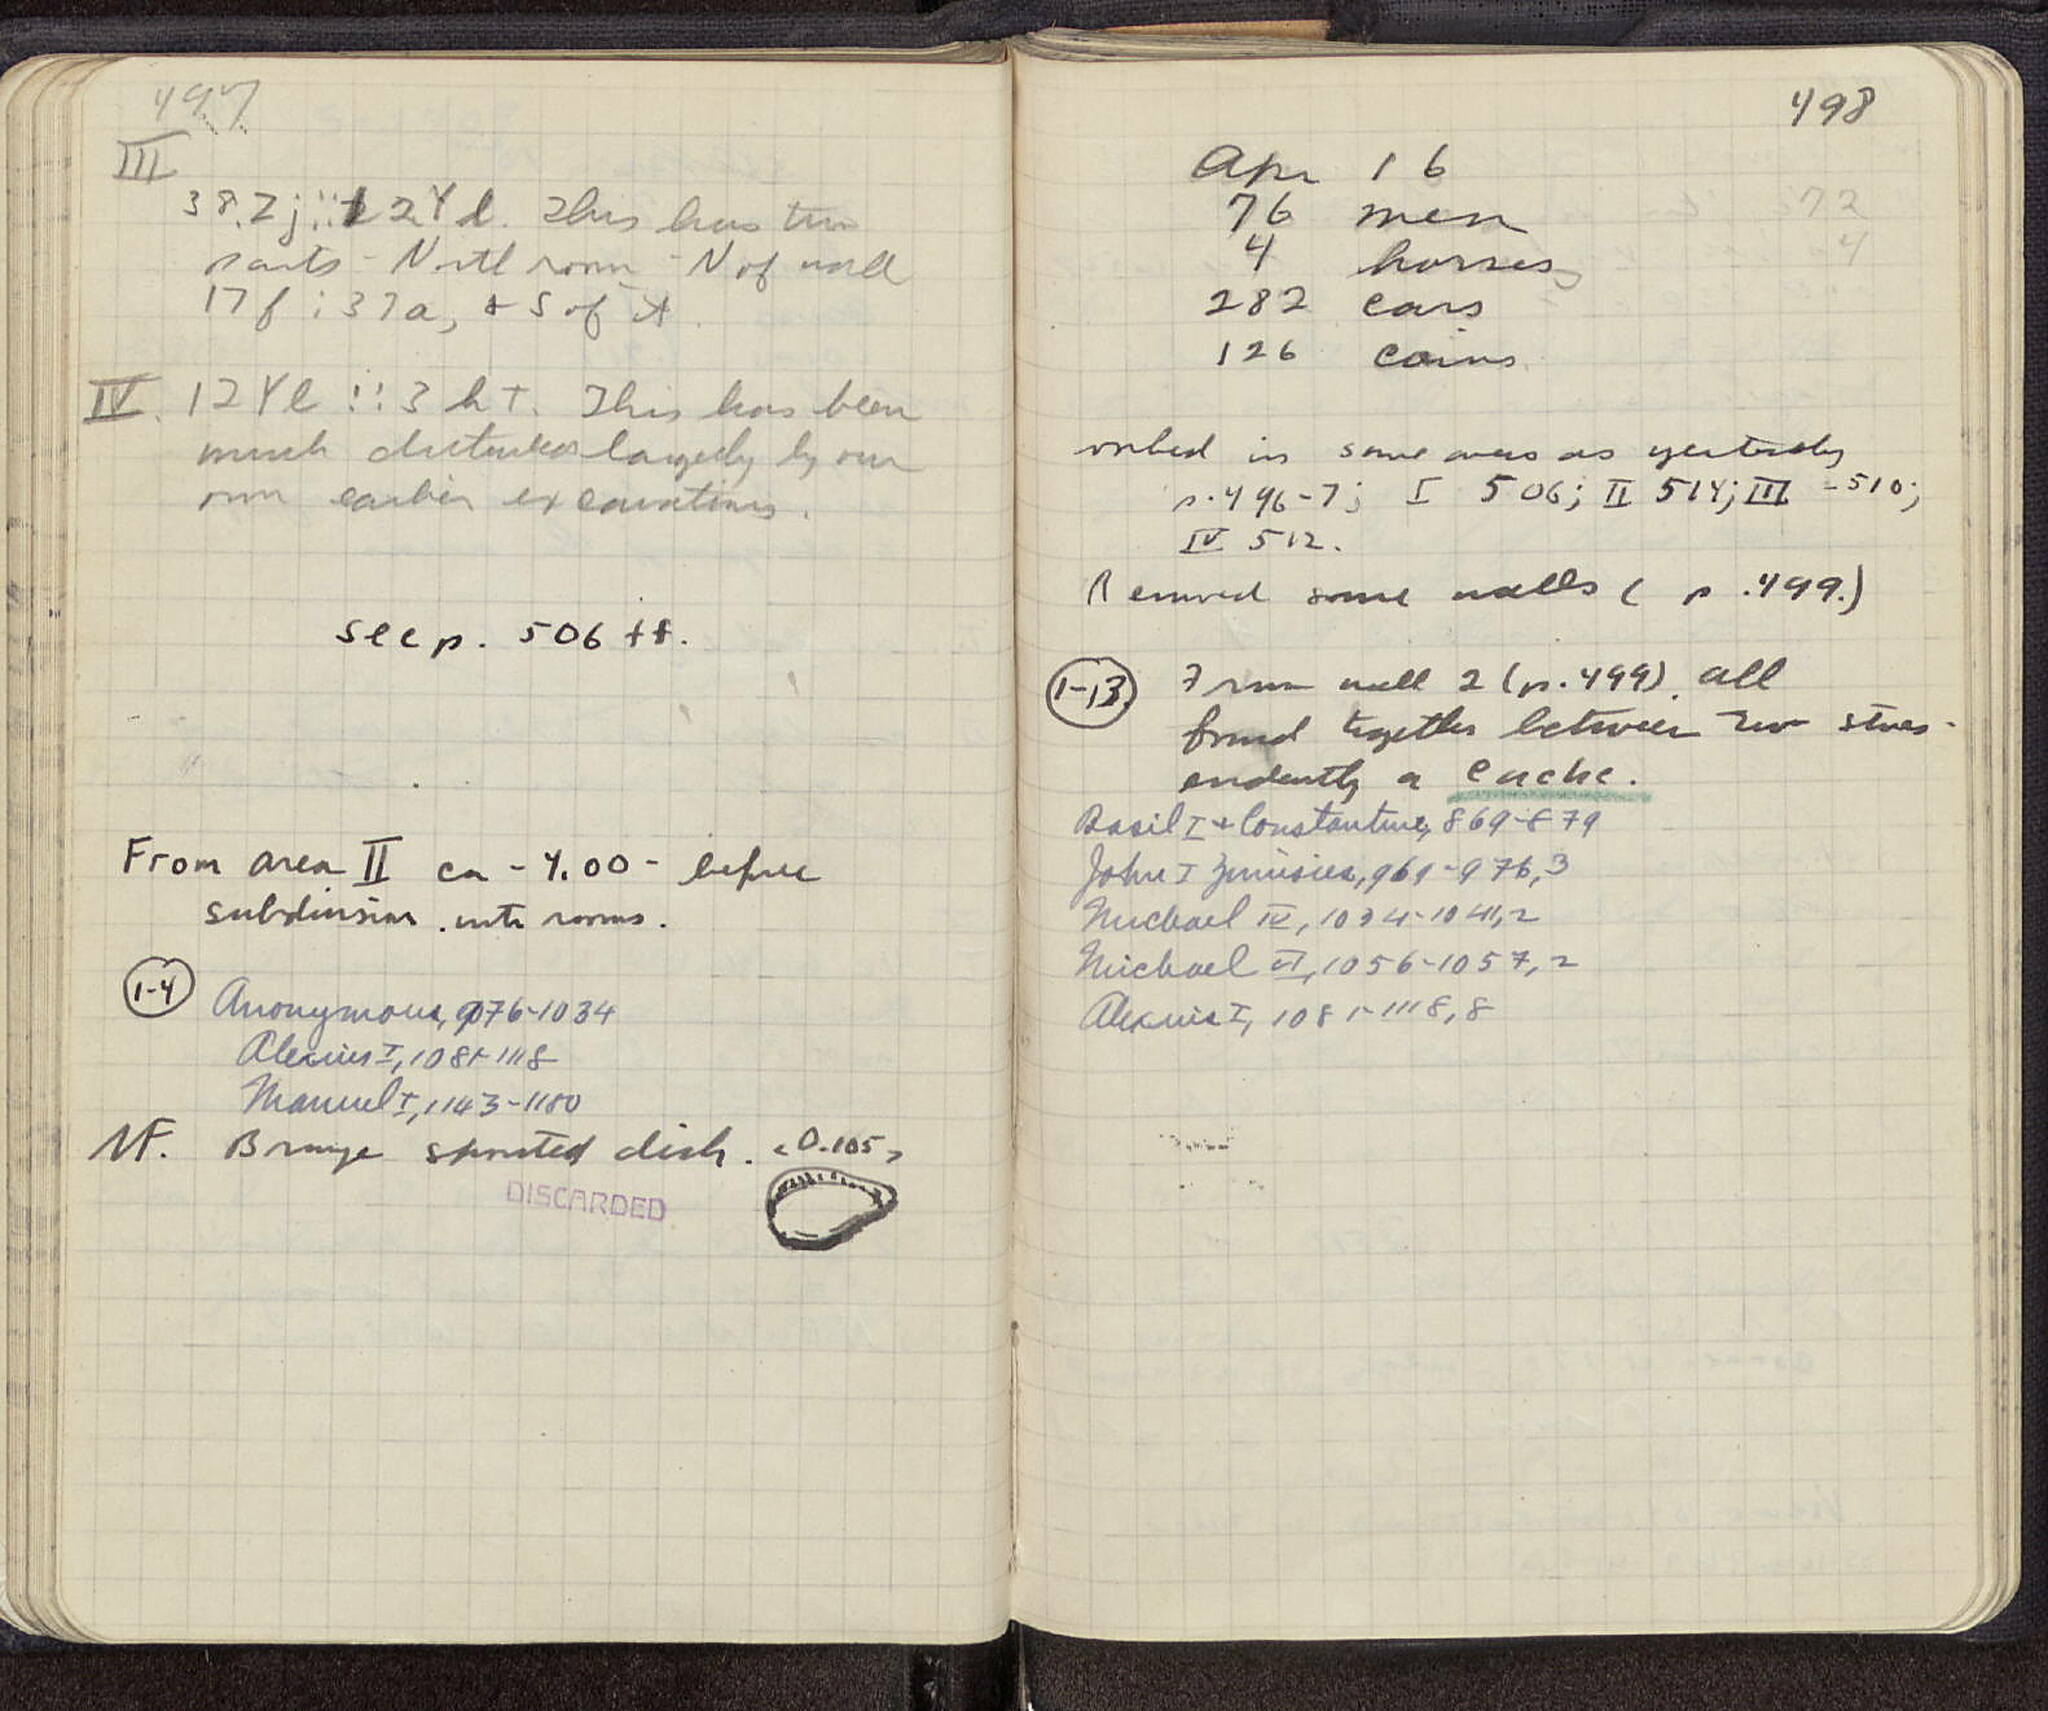 497
III
38.Z j ::: 12 Y l. This has two
parts - North room - N of wall
17 f : 37 a, + S of it.
IV. 12 Y l ::: 3 h t. This has been
much disturbed largely by our
own earlier excavations.
see p. 506 ff.
From area II ca - 4.00 - before
subdivision into rooms.
1-4 Anonymous, 976-1034
Alexius I, 1081-1118
Manuel I, 1143-1180
NF. Bronze spouted dish. <0.105>
DISCARDED
498
Apr 16
76 men
4 horses
282 cars
126 coins
worked in same areas as yesterday
p. 496-7; I 506; II 514; III - 510;
IV 512.
Removed some walls ( p. 499.)
1-13 From wall 2 (p. 499). all
found together between two stones -
evidently a cache.
Basil I + Constantine, 869-879
John I Zimisces, 969-976, 3
Michael IV, 1034-1041, 2
Michael VI, 1056-1057, 2
Alexius I, 1081-1118, 8